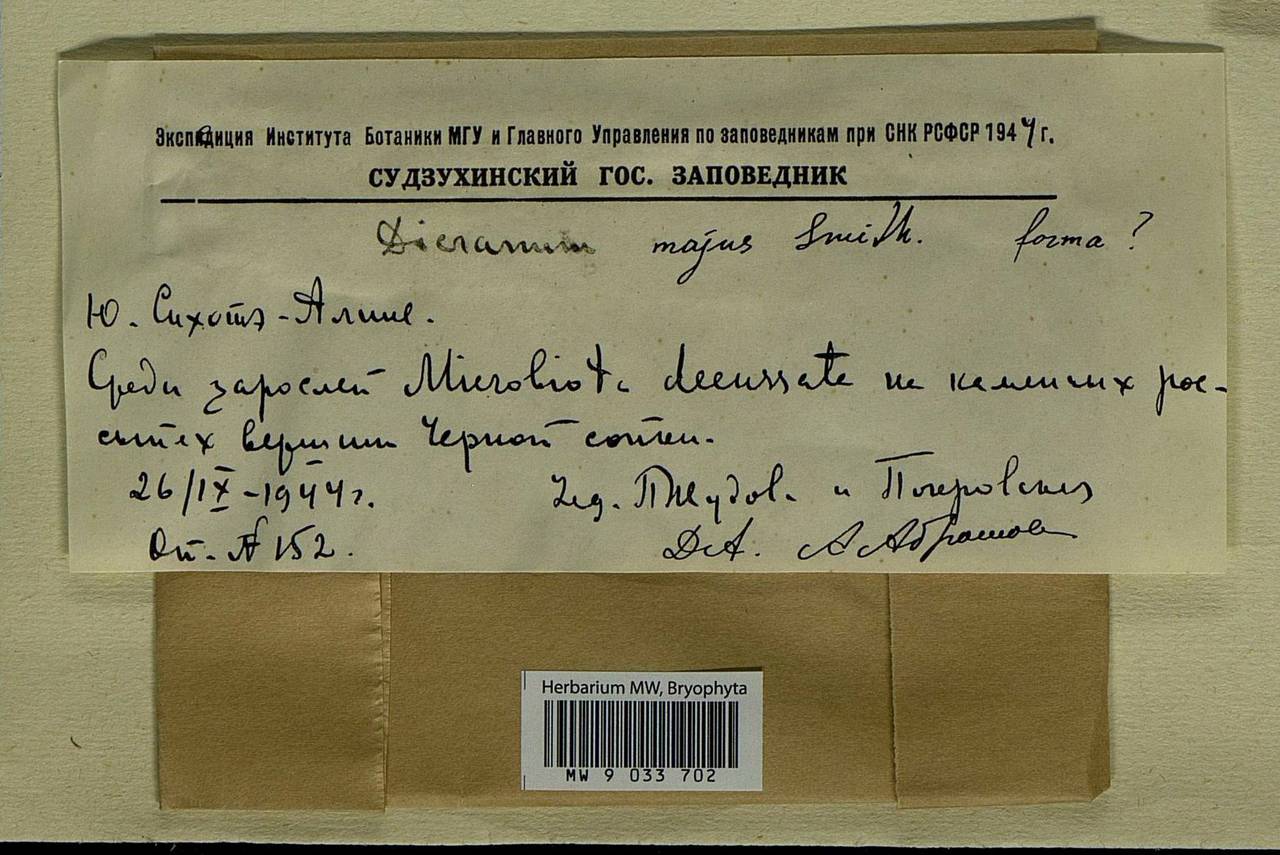 Экспедиция Института Ботаники МГУ и Главного Управления по заповедникам при СНК РСФСР 1944 г.
СУДЗУХИНСКИЙ ГОС. ЗАПОВЕДНИК
Dicranum majus Smith. forma ?
Ю. Сихотэ-Алине.
Среди зарослей Microbiota decussata на каменных рос-
сыпях вершин Черной сопки.
26/IX-1944 г.
и Покровская
Оп. № 152.
Det. А Абрамова
Herbarium MW, Bryophyta
MW 9 033 702